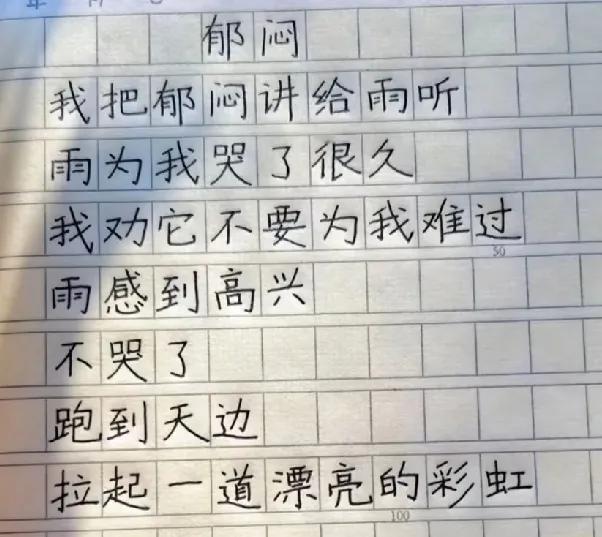 郁闷
我把郁闷讲给雨听
雨为我哭了很久
我劝它不要为我难过
50
雨感到高兴
不哭了
跑到天边
拉起一道漂亮的彩虹
100